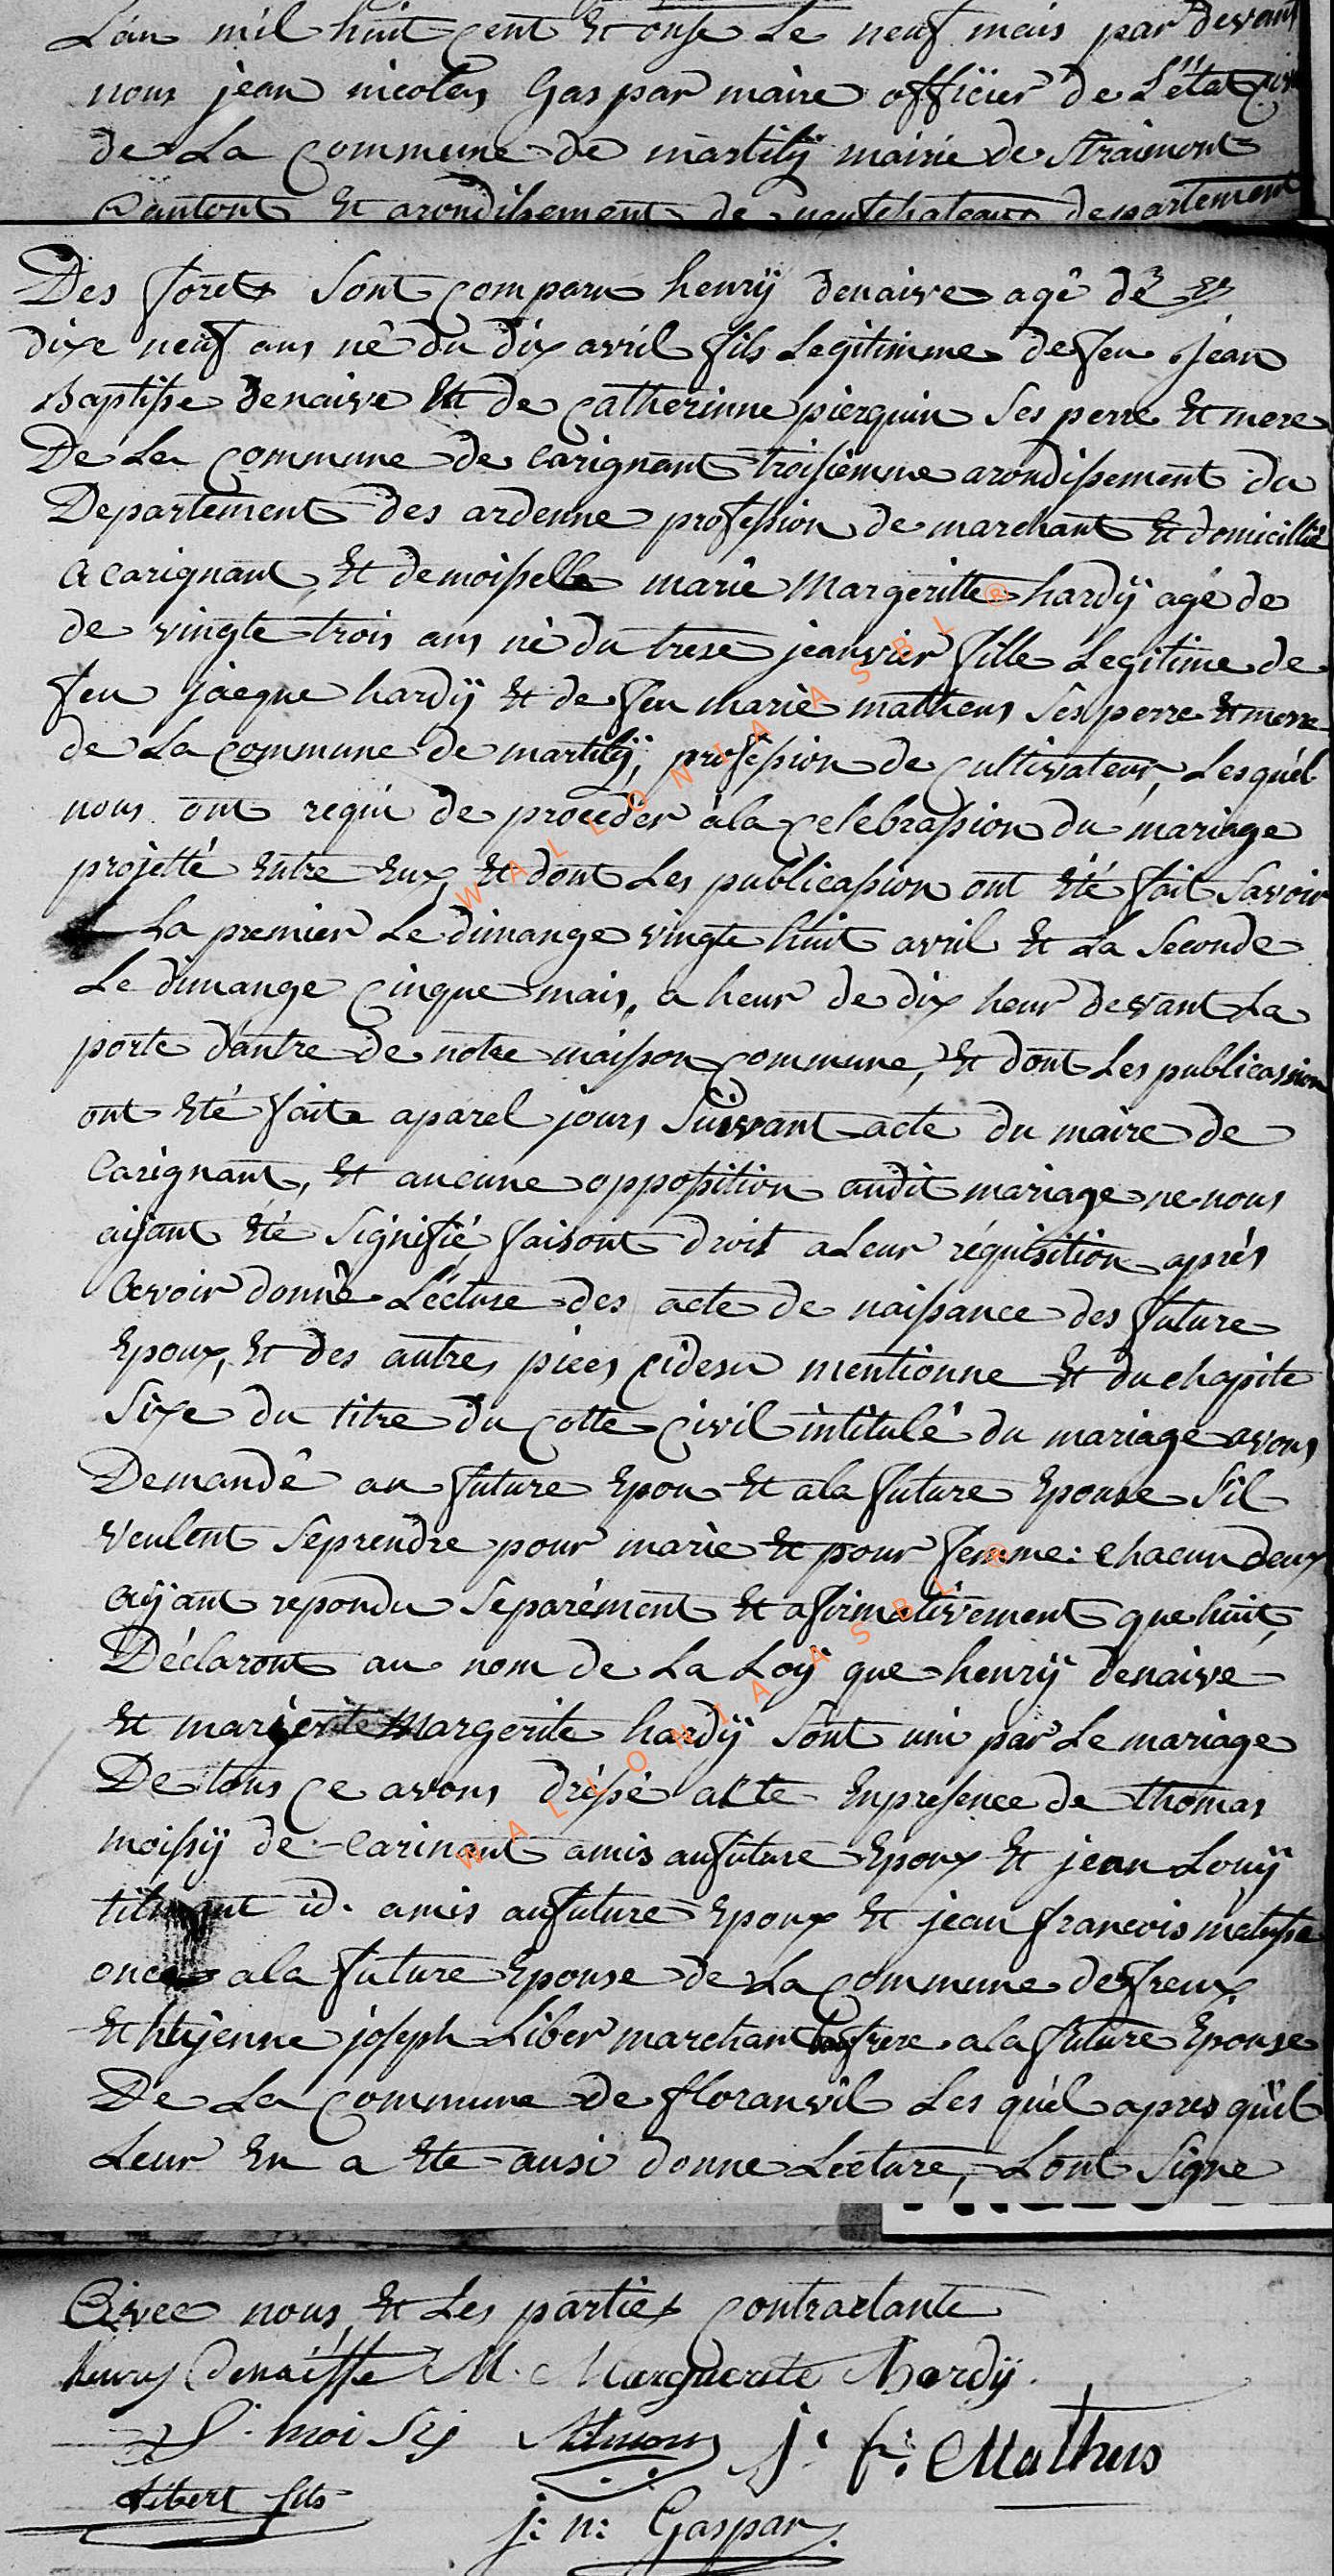 L'an mil huit cent et onse le neuf mais par devant
nous jean nicolas Gaspar maire officier de L'état civil
de La Commune de martilÿ mairie de Straimont
Cantont et arondissement de neufchateaux departement
Des foret Sont Comparu henrÿ denaive agé dé
dixe neuf ans né du dix avril fils Legitimme de feu jean
Baptisse denaive Et de Catherinne pierquin Ses perre Et mere
De La Commune de Carignant troisiemme arondissement du
Departement des ardenne profession de marchant Et domicillié
a Carignant, Et demoiselle marie Margeritte hardÿ agé de
de vingte trois ans né du trese jeanvier fille Legitime de
feu jacque hardÿ Et de feu marie matheus Ses perre Et merre
de La Commune de martilÿ, profession de Cultivateur, Lesquél
nous ont requi de proceder à la Celebrassion du mariage
projetté Entre Eux, Et dont Les publicassion ont Eté fait Savoir
La premier Le dimange vingte huit avril Et La Seconde
Le dimange Cinque mais, a heur de dix heur devant La
porte d'antre de notre maisson Commune, Et dont Les publicassion
ont Eté faite aparel jours Suivant acte du maire de
Carignant, Et aucunne oppossition audit mariage ne nous
aijant Eté Signifié faisont droit a Leur réquisition aprés
avoir donné Lécture des acte de naissance des future
Epoux, Et des autres pieces Cidesu mentionne Et du chapite
Sixe du titre du Cotte Civil intitulé du mariage avons
Demandé au future Epou Et a la future Epouse S'il
veulent Se prendre pour marie Et pour femme: Chacun deux
aijant repondu Séparément Et afirmativement que huit
Déclaront au nom de La Loÿ que henrÿ denaive
Et margerite Margerite hardÿ Sont uni par Le mariage
De tous Ce avons dréssé acte En presence de thomas
moissÿ de Carinant amis au future Epoux Et jean Louÿ
id. amis au future Epoux Et jean francois
oncle a la future Epouse de La Commune de freux
Et joseph Liber marchant frere a la future Epouse
De La Commune de floranvil Les quél apres quil
Leur En a Ete ausi donne Lecture, L'ont Signe
Avec nous Et Les parties Contractante
henry Denaisse M. Marguerite Hardÿ.
moissÿ Tilmont j: f: Mathus
Libert fils
j: n: Gaspar
W A L L O N I A A S B L ®
W A L L O N I A A S B L ®